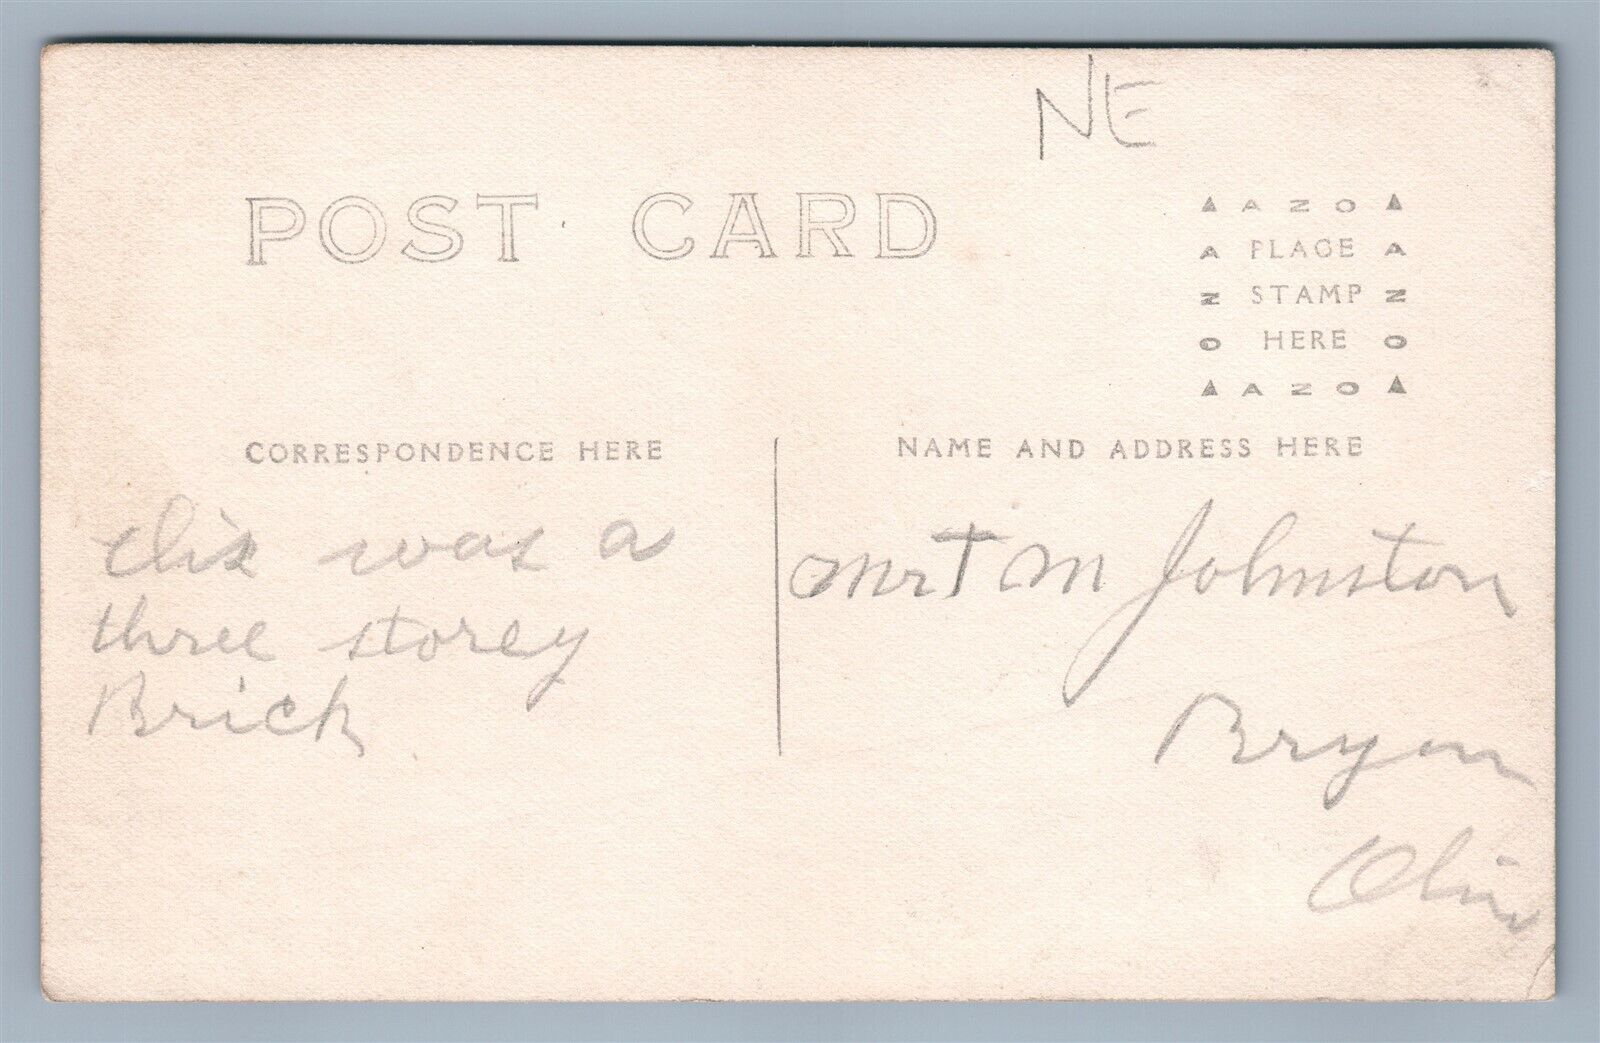 NE
POST CARD
AZO
PLACE
STAMP
HERE
AZO
CORRESPONDENCE HERE
was a
three storey
Brick
NAME AND ADDRESS HERE
Mr T M Johnston
Bryan
Ohio